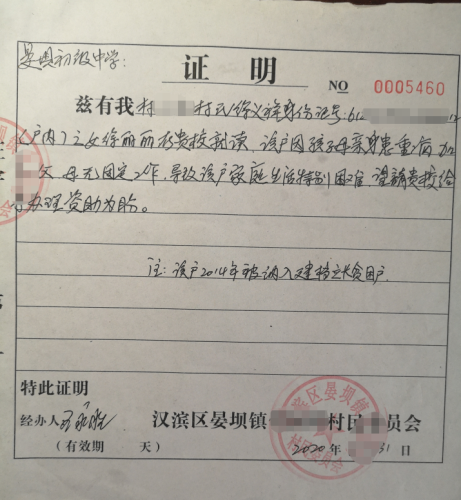 晏坝初级中学:
证 明
NO 0005460
兹有我村 村民徐义祥身份证号: 6
(户内)之女徐丽丽在贵校就读,该户因孩子母亲身患重病,加
父母无固定工作,导致该户家庭生活特别困难,望请贵校给
办理资助为盼。
注: 该户2014年被纳入建档立卡贫困户
特此证明
经办人
汉滨区晏坝镇 村民委员会
(有效期 天) 2020年 31日
汉滨区晏坝镇
村民委员会